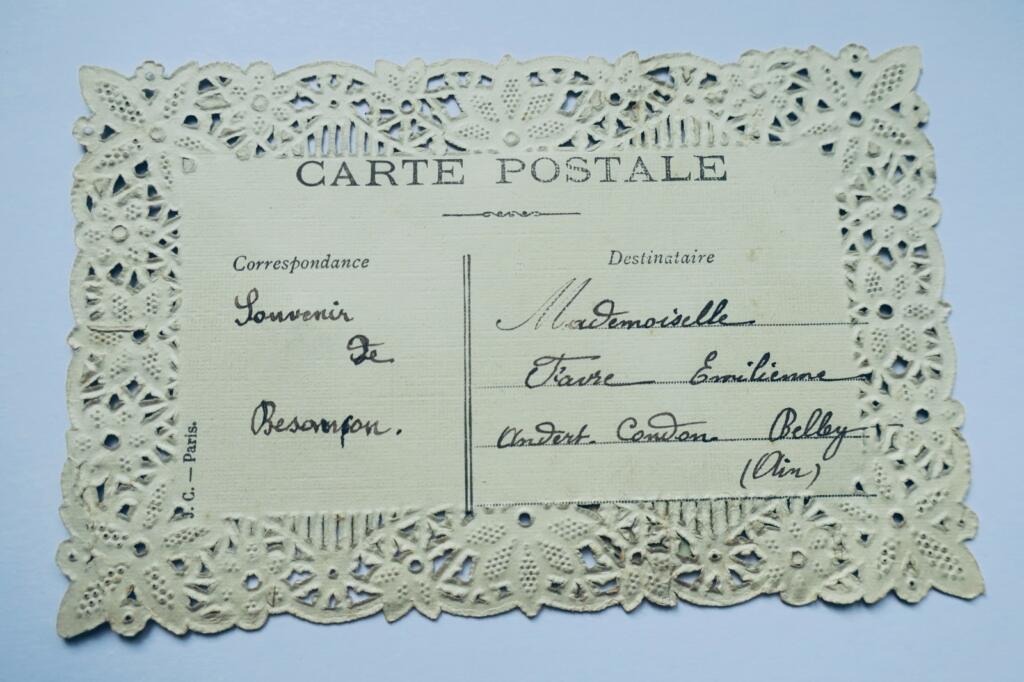 CARTE POSTALE
Correspondance
Souvenir
De
Besançon.
Destinataire
Mademoiselle
Favre Emilienne
Andert. Condon. Belley
(Ain)
J. C. — Paris.